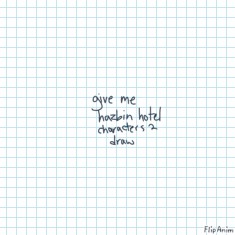 give me
hazbin hotel
characters 2
draw
FlipAnim